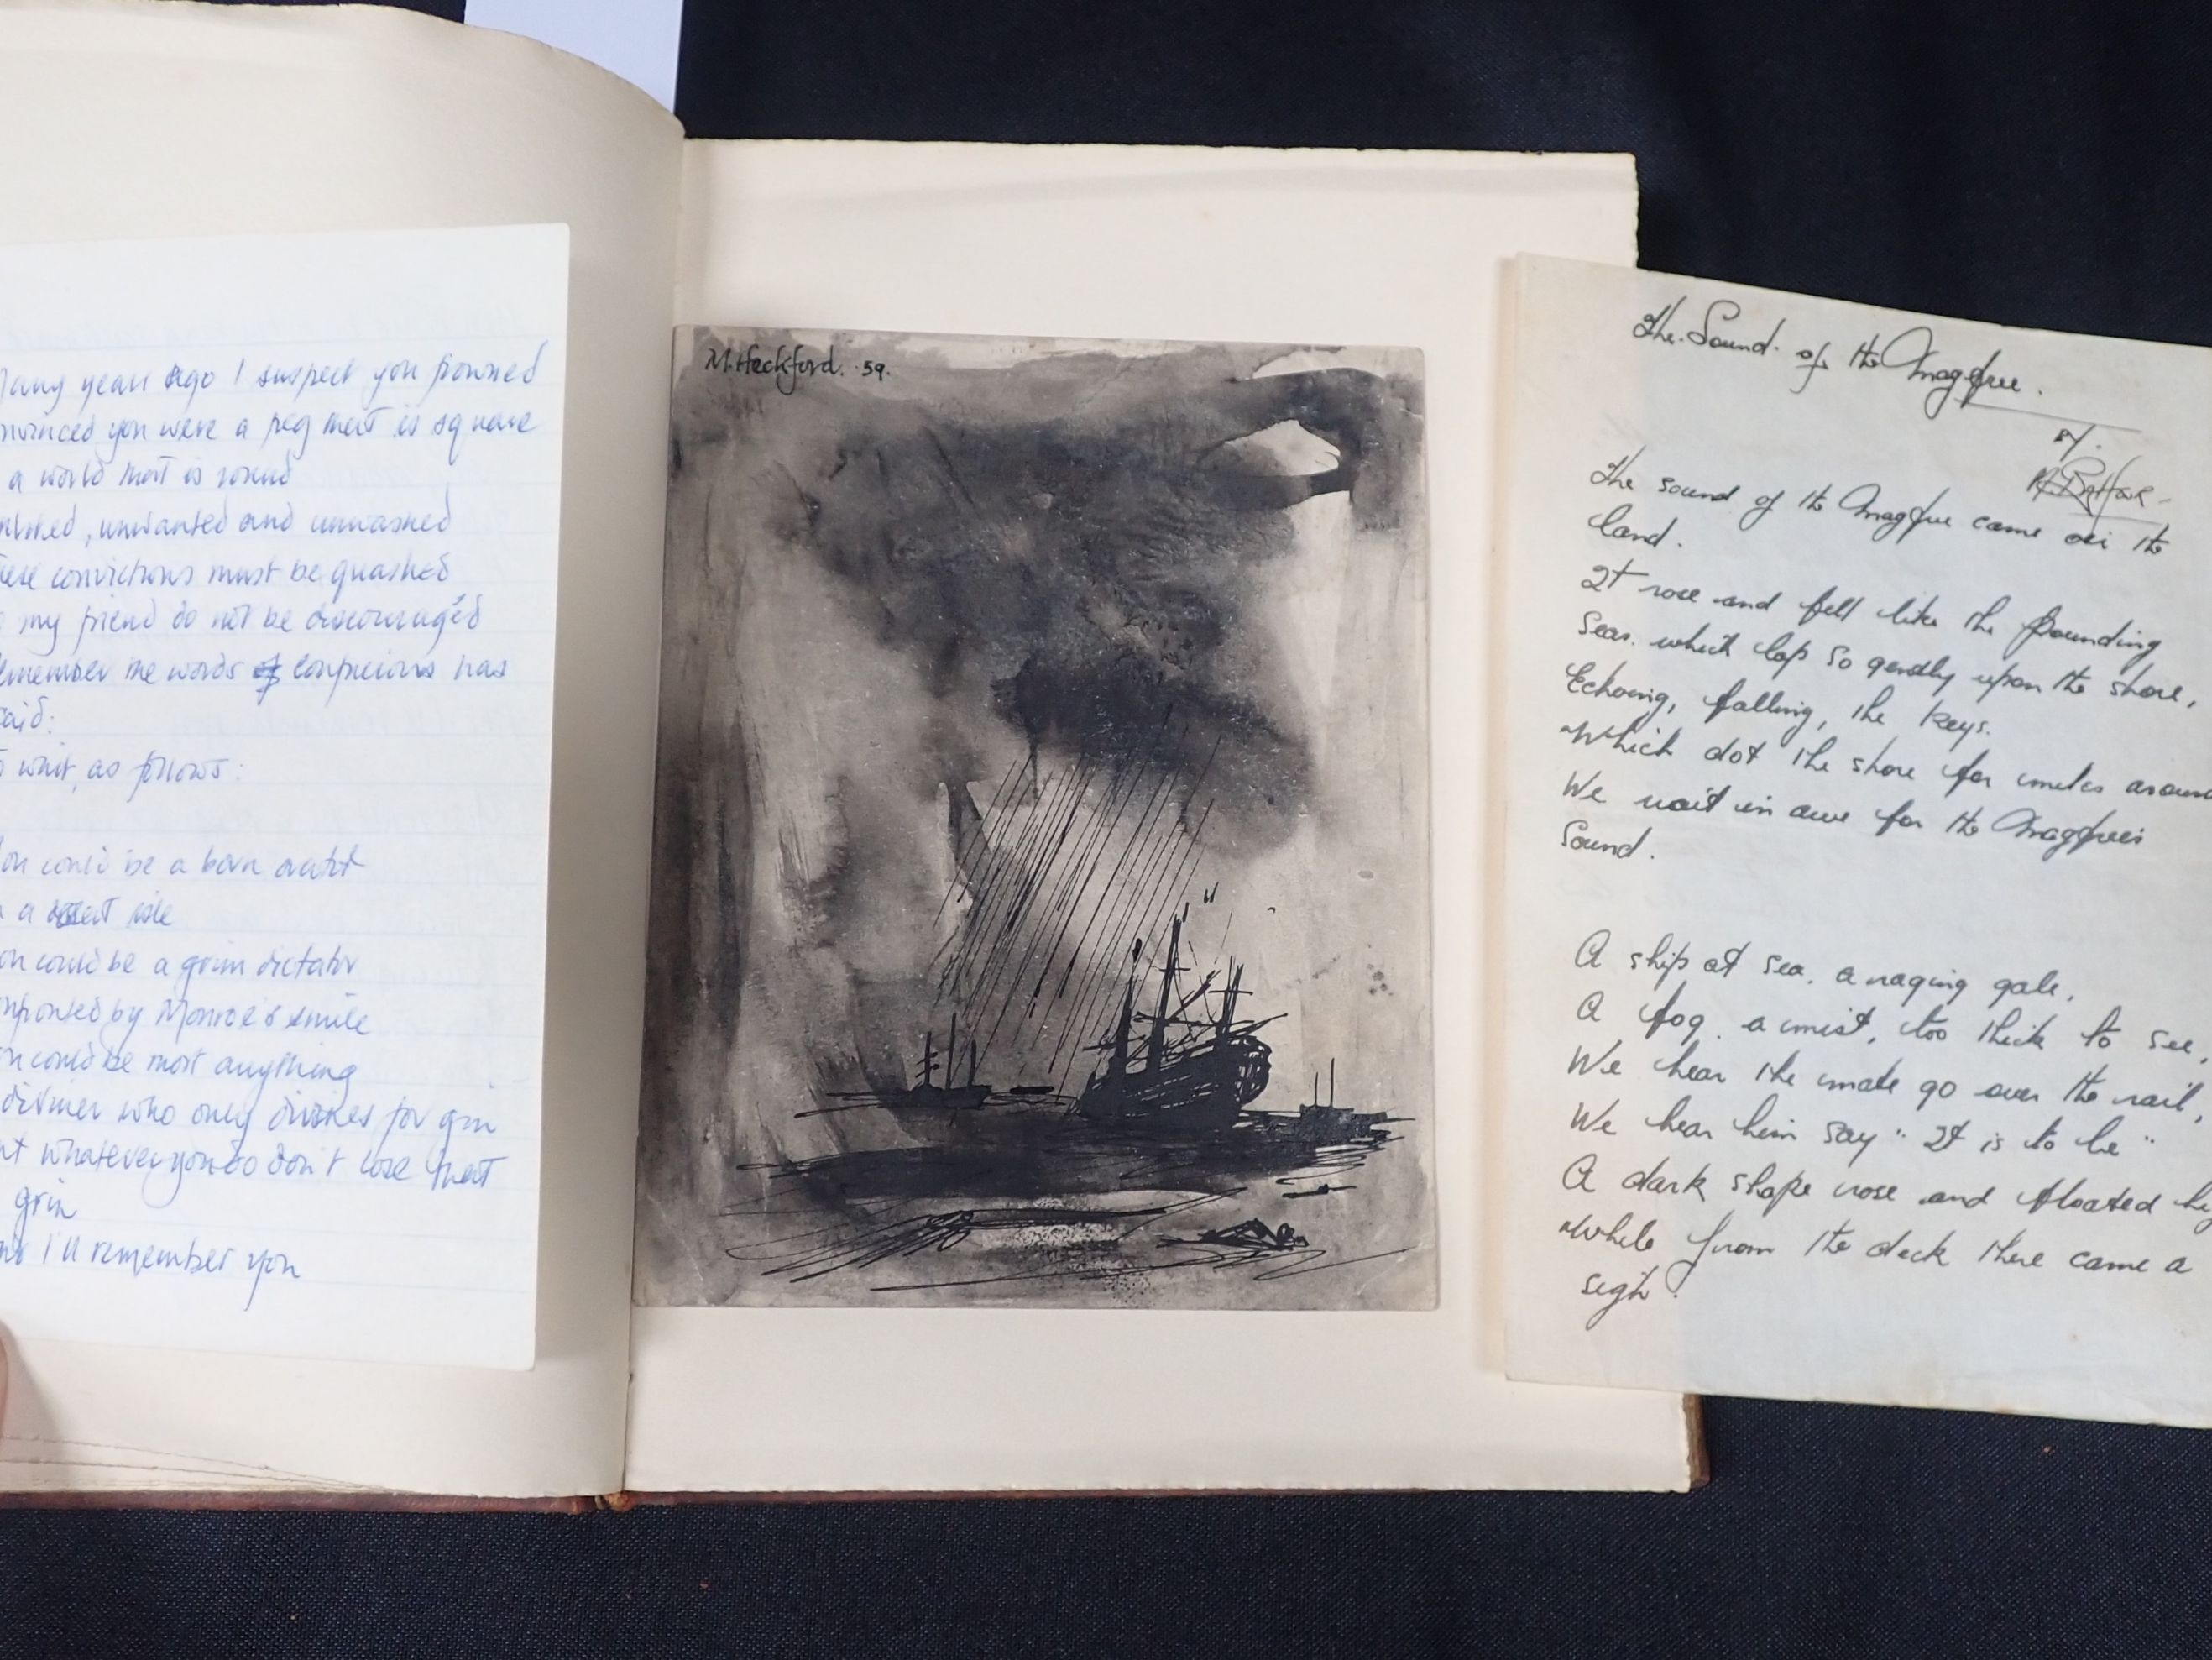 any years ago I suspect you frowned
you were a peg that is square
a world that is round
, unwanted and unwashed
convictions must be quashed
my friend do not be discouraged
the words of conpucious has
aid:
whit, as follows:
could be a born
a isle
could be a grim dictator
by Monroe's smile
could be most anything
diviner who only divines for gin
whatever you do don't lose that
grin
I'll remember you
M. Heckford. 59.
The Sound of the Magqfree.
by.
The sound of the came oer the
land.
It rose and fell like the pounding
Seas. which lap so gently upon the shore,
Echoing, falling, the Keys.
Which dot the shore for miles around
We wait in awe for the
Sound.
A ship at sea. a raging gale,
A fog. a mist, too thick to see,
We hear the mate go over the rail,
We hear him say "It is to be"
A dark shape rose and floated by
While from the deck there came a
sigh.